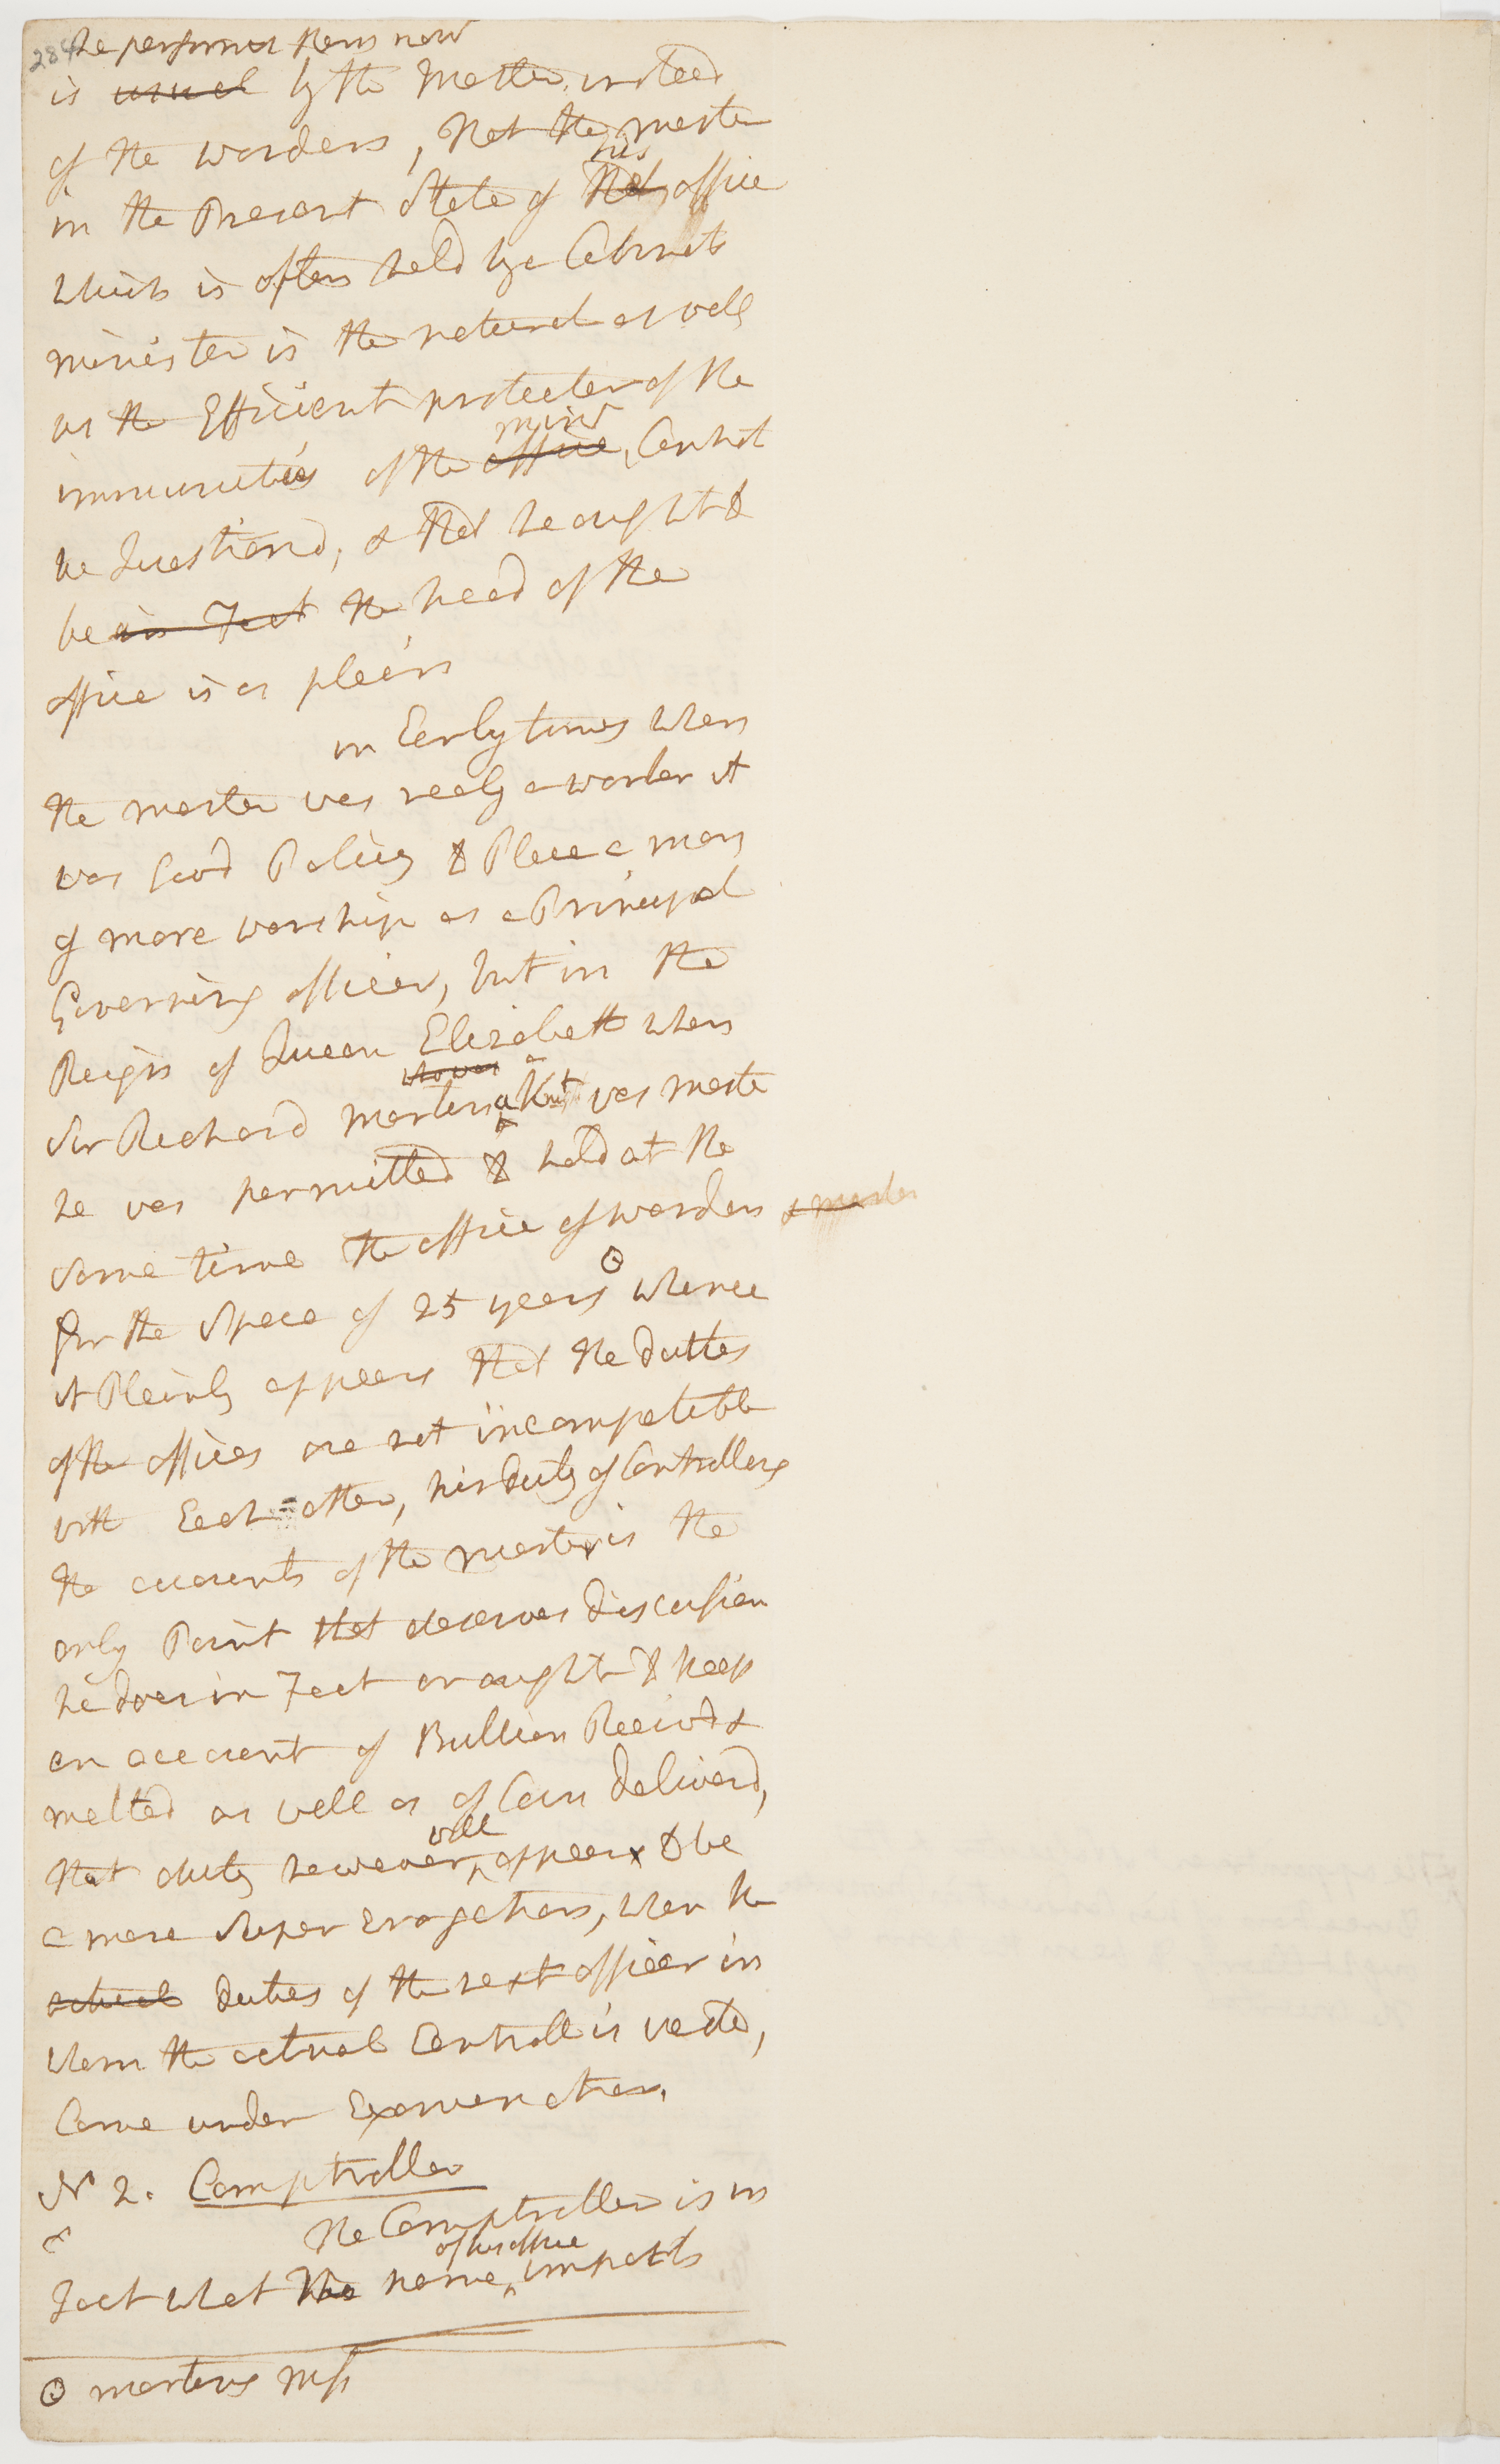 284
he performes them now
is usual by the Master, insteed
of the wardens, that the master
in the Present State of that his office
which is often held by a Cabinet
minister is the natural as well
as the Efficient protector of the
immunities of the office mint, Cannot
be Questiond, & that he ought to
be in Fact the head of the
office is as plain
in Early times when
the master was realy a worker it
was good Policy to Place a man
of more worship as a Principal
Governing officer, but in the
Reign of Queen Elizabeth when
Sir Richard Martin who was a Knt was Master
he was permitted to hold at the
same time the office of warden & master
for the space of 25 years ⊙ whence
it Plainly appears that the duties
of the offices are not incompatible
with Each other, his duty of Controlling
the accounts of the master is the
only Point that deserves discussion
he does in Fact or ought to keep
an account of Bullion Receivd &
melted as well as of Coin deliverd,
that duty however will appear to be
a mere Super Erogation, when the
actual duties of the next officer in
whom the actual Controll is vested,
Come under Examination,
No 2. Comptroller
The Comptroller is in
Fact what the name of his office imports
⊙ martins Mss